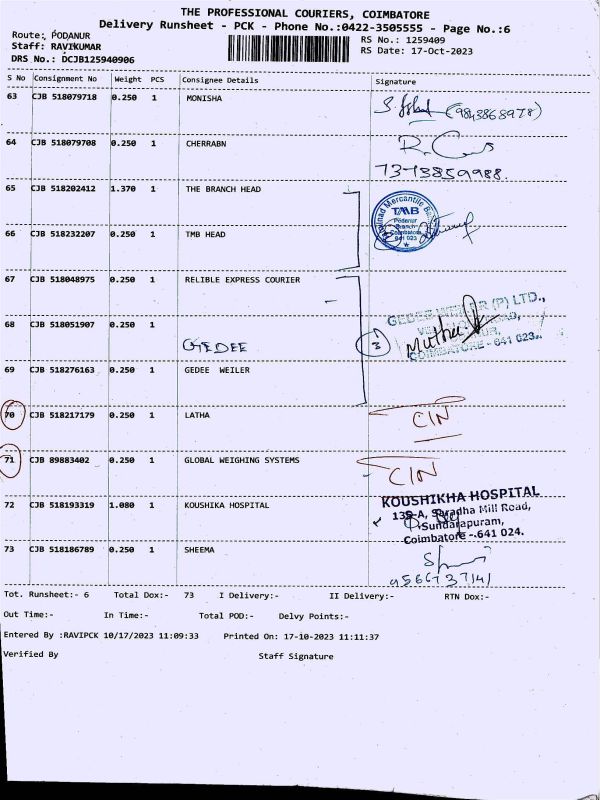 THE PROFESSIONAL COURIERS, COIMBATORE
Delivery Runsheet - PCK - Phone No.:0422-3505555 - Page No.:6
Route: PODANUR
RS No.: 1259409
Staff: RAVIKUMAR
RS Date: 17-Oct-2023
DRS No.: DCJB125940906
S No Consignment No Weight PCS Consignee Details Signature
63 CJB 518079718 0.250 1 MONISHA
(9843868978)
64 CJB 518079708 0.250 1 CHERRABN
7373859988.
65 CJB 518202412 1.370 1 THE BRANCH HEAD
TMB
Podanur
Branch
Coimbatore
641 023
66 CJB 518232207 0.250 1 TMB HEAD
67 CJB 518048975 0.250 1 RELIBLE EXPRESS COURIER
GEDEE WEILER (P) LTD.,
68 CJB 518051907 0.250 1
GEDEE
3
COIMBATORE - 641 023.
69 CJB 518276163 0.250 1 GEDEE WEILER
70 CJB 518217179 0.250 1 LATHA CIN
71 CJB 89883402 0.250 1 GLOBAL WEIGHING SYSTEMS CIN
72 CJB 518193319 1.080 1 KOUSHIKA HOSPITAL
KOUSHIKHA HOSPITAL
139-A, Saradha Mill Road,
Sundarapuram,
Coimbatore - 641 024.
73 CJB 518186789 0.250 1 SHEEMA
9566737141
Tot. Runsheet:- 6 Total Dox:- 73 I Delivery:- II Delivery:- RTN Dox:-
Out Time:- In Time:- Total POD:- Delvy Points:-
Entered By :RAVIPCK 10/17/2023 11:09:33 Printed On: 17-10-2023 11:11:37
Verified By Staff Signature